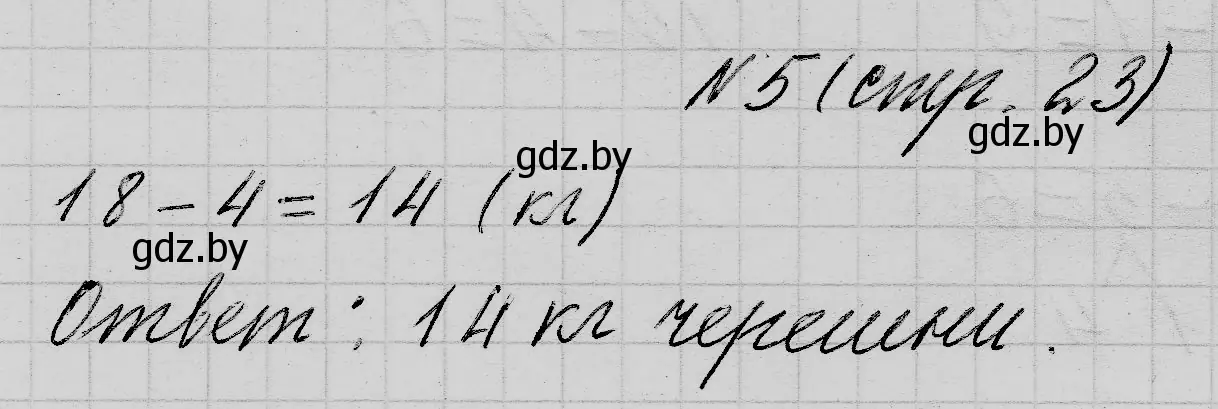 №5 (стр. 23)
gdz.by
gdz.by
18 - 4 = 14 (кг)
gdz.by
Ответ: 14 кг черешни.